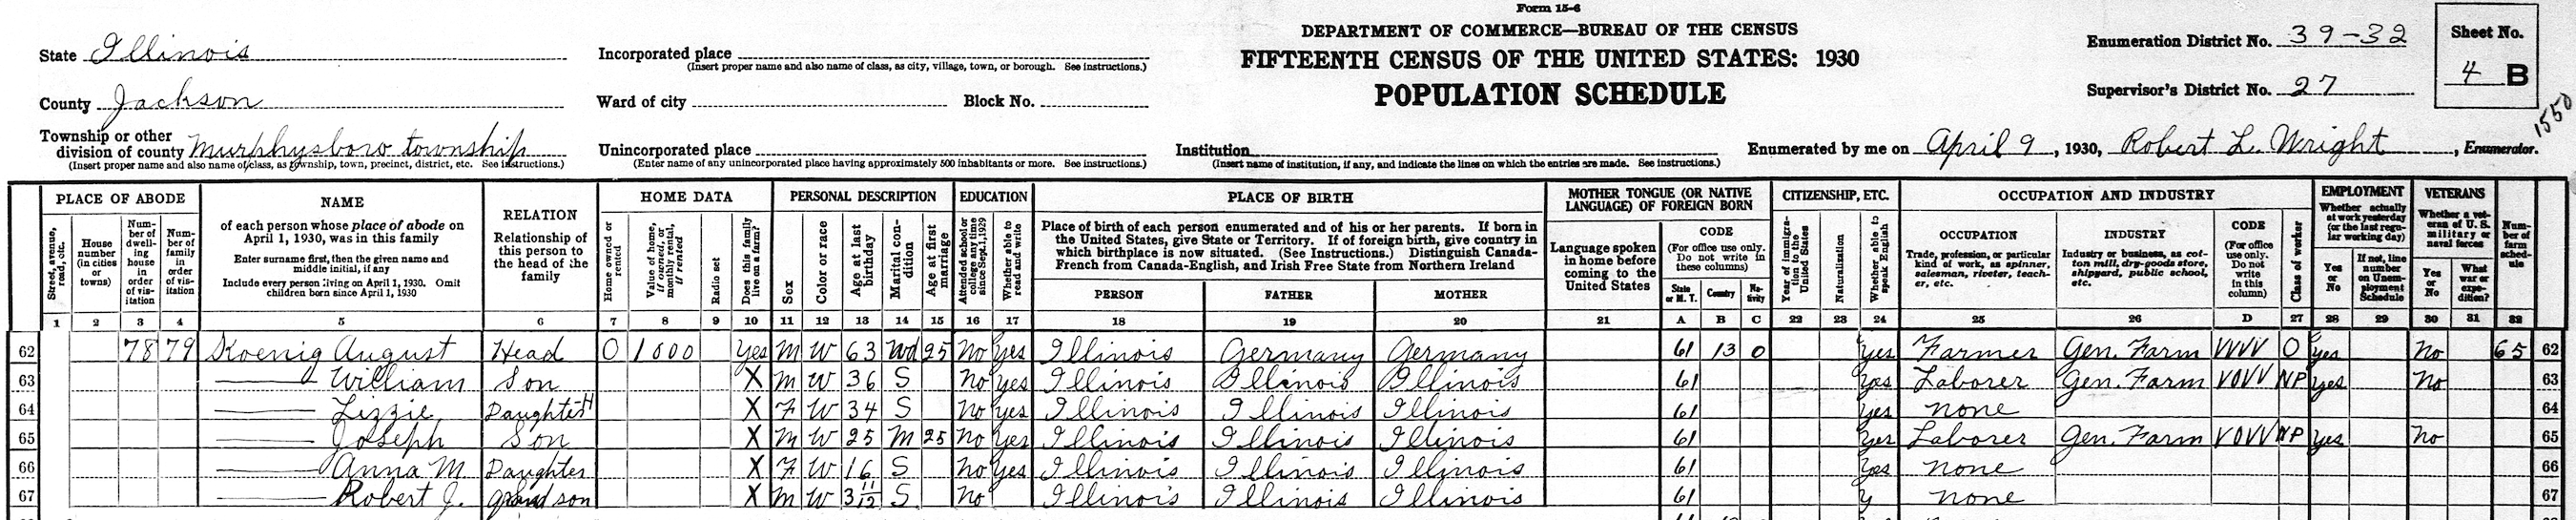 Form 15-6
DEPARTMENT OF COMMERCE—BUREAU OF THE CENSUS
FIFTEENTH CENSUS OF THE UNITED STATES: 1930
POPULATION SCHEDULE
State Illinois
County Jackson
Township or other division of county Murphysboro township
(Insert proper name and also name of class, as township, town, precinct, district, etc. See instructions.)
Incorporated place
(Insert proper name and also name of class, as city, village, town, or borough. See instructions.)
Ward of city Block No.
Unincorporated place
(Enter name of any unincorporated place having approximately 500 inhabitants or more. See instructions.)
Institution
(Insert name of institution, if any, and indicate the lines on which the entries are made. See instructions.)
Enumeration District No. 39-32
Supervisor's District No. 27
Sheet No.
4 B
1550
Enumerated by me on April 9, 1930, Robert L. Wright, Enumerator.
PLACE OF ABODE
Street, avenue, road, etc.
House number (in cities or towns)
Number of dwelling house in order of visitation
Number of family in order of visitation
NAME
of each person whose place of abode on April 1, 1930, was in this family
Enter surname first, then the given name and middle initial, if any
Include every person living on April 1, 1930. Omit children born since April 1, 1930
RELATION
Relationship of this person to the head of the family
HOME DATA
Home owned or rented
Value of home, if owned, or monthly rental, if rented
Radio set
Does this family live on a farm?
PERSONAL DESCRIPTION
Sex
Color or race
Age at last birthday
Marital condition
Age at first marriage
EDUCATION
Attended school or college any time since Sept. 1, 1929
Whether able to read and write
PLACE OF BIRTH
Place of birth of each person enumerated and of his or her parents. If born in the United States, give State or Territory. If of foreign birth, give country in which birthplace is now situated. (See Instructions.) Distinguish Canada-French from Canada-English, and Irish Free State from Northern Ireland
PERSON FATHER MOTHER
MOTHER TONGUE (OR NATIVE LANGUAGE) OF FOREIGN BORN
Language spoken in home before coming to the United States
CODE
(For office use only. Do not write in these columns)
State or M. T. Country Nativity
CITIZENSHIP, ETC.
Year of immigration to the United States
Naturalization
Whether able to speak English
OCCUPATION AND INDUSTRY
OCCUPATION
Trade, profession, or particular kind of work, as spinner, salesman, riveter, teacher, etc.
INDUSTRY
Industry or business, as cotton mill, dry-goods store, shipyard, public school, etc.
CODE
(For office use only. Do not write in this column)
Class of worker
EMPLOYMENT
Whether actually at work yesterday (or the last regular working day)
Yes or No
If not, line number on Unemployment Schedule
VETERANS
Whether a veteran of U. S. military or naval forces
Yes or No
What war or expedition?
Number of farm schedule
1 2 3 4 5 6 7 8 9 10 11 12 13 14 15 16 17 18 19 20 21 A B C 22 23 24 25 26 D 27 28 29 30 31 32
62 78 79 Koenig August Head O 1000 Yes M W 63 Wd 25 No Yes Illinois Germany Germany 61 13 0 Yes Farmer Gen. Farm VVVV O Yes No 65 62
63 — William Son X M W 36 S No Yes Illinois Illinois Illinois 61 Yes Laborer Gen. Farm VOVV NP Yes No 63
64 — Lizzie Daughter H X F W 34 S No Yes Illinois Illinois Illinois 61 Yes none 64
65 — Joseph Son X M W 25 M 25 No Yes Illinois Illinois Illinois 61 Yes Laborer Gen. Farm VOVV NP Yes No 65
66 — Anna M. Daughter X F W 16 S No Yes Illinois Illinois Illinois 61 Yes none 66
67 — Robert J. grandson X M W 3 11/12 S No Illinois Illinois Illinois 61 Y none 67